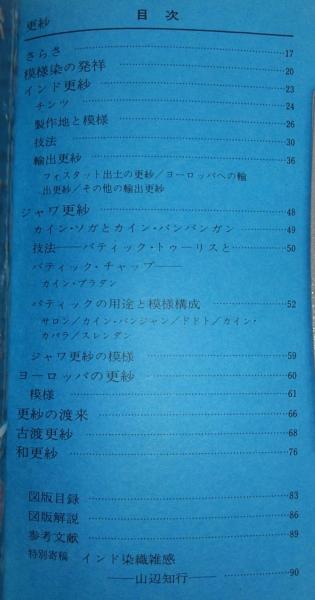 目次
更紗
さらさ 17
模様染の発祥 20
インド更紗 23
チンツ 24
製作地と模様 26
技法 30
輸出更紗 36
フォスタット出土の更紗/ヨーロッパへの輸
出更紗/その他の輸出更紗
ジャワ更紗 48
カイン・ソガとカイン・バンバンガン 49
技法——バティック・トゥーリスと 50
バティック・チャップ——
カイン・プラダン
バティックの用途と模様構成 52
サロン/カイン・パンジャン/ドドト/カイン・
カパラ/スレンダン
ジャワ更紗の模様 59
ヨーロッパの更紗 60
模様 61
更紗の渡来 66
古渡更紗 68
和更紗 76
図版目録 83
図版解説 86
参考文献 89
特別寄稿 インド染織雑感
——山辺知行—— 90